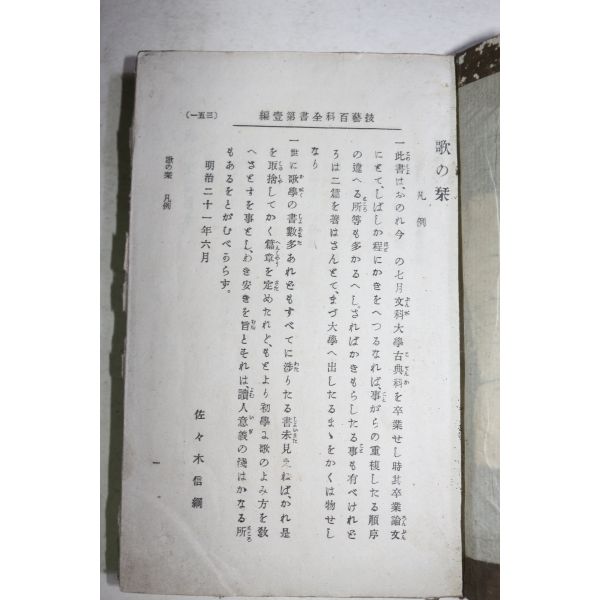 技藝百科全書第壹編
(三五一)
歌の栞
凡例
一此書は、おのれ今の七月文科大學古典科を卒業せし時其卒業論文
にとて、しばしか程にかきをへつるなれば、事がらの重複したる順序
の違へる所等も多かるへし。さればかきもらしたる事も有べけれど
ろは二篇を著はさんとて、まづ大學へ出したるまゝをかくは物せし
なり
一世に歌學の書數多あれどもすべてに渉りたる書未見えねば、かれ是
を取捨してかく篇章を定めたれど、もとより初學に歌のよみ方を教
へさとすを事とし、わき安きを旨とそれは、讀人意義の淺はかなる所
もあるをとがむべからず。
明治二十一年六月
佐々木信綱
歌の栞 凡例
一